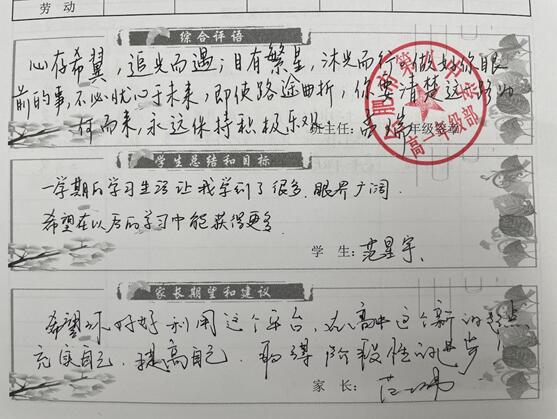 劳动
综合评语
心存希翼，追光而遇；目有繁星，沐光而行。做好你眼
前的事，不必忧心于未来，即使路途曲折，你要清楚这
何而来，永远保持积极乐观
班主任： 年级签章
高一年级部
学生总结和目标
一学期的学习生活让我学到了很多，眼界广阔
希望在以后的学习中能获得更多
学 生：范星宇
家长期望和建议
希望你好好利用这个平台，在高中这个新的起点
充实自己，提高自己，取得阶段性的进步
家 长：